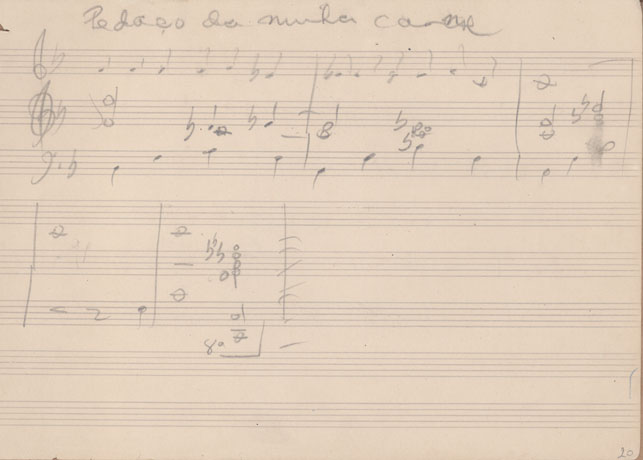 Pedaço da minha carne
8ª
20